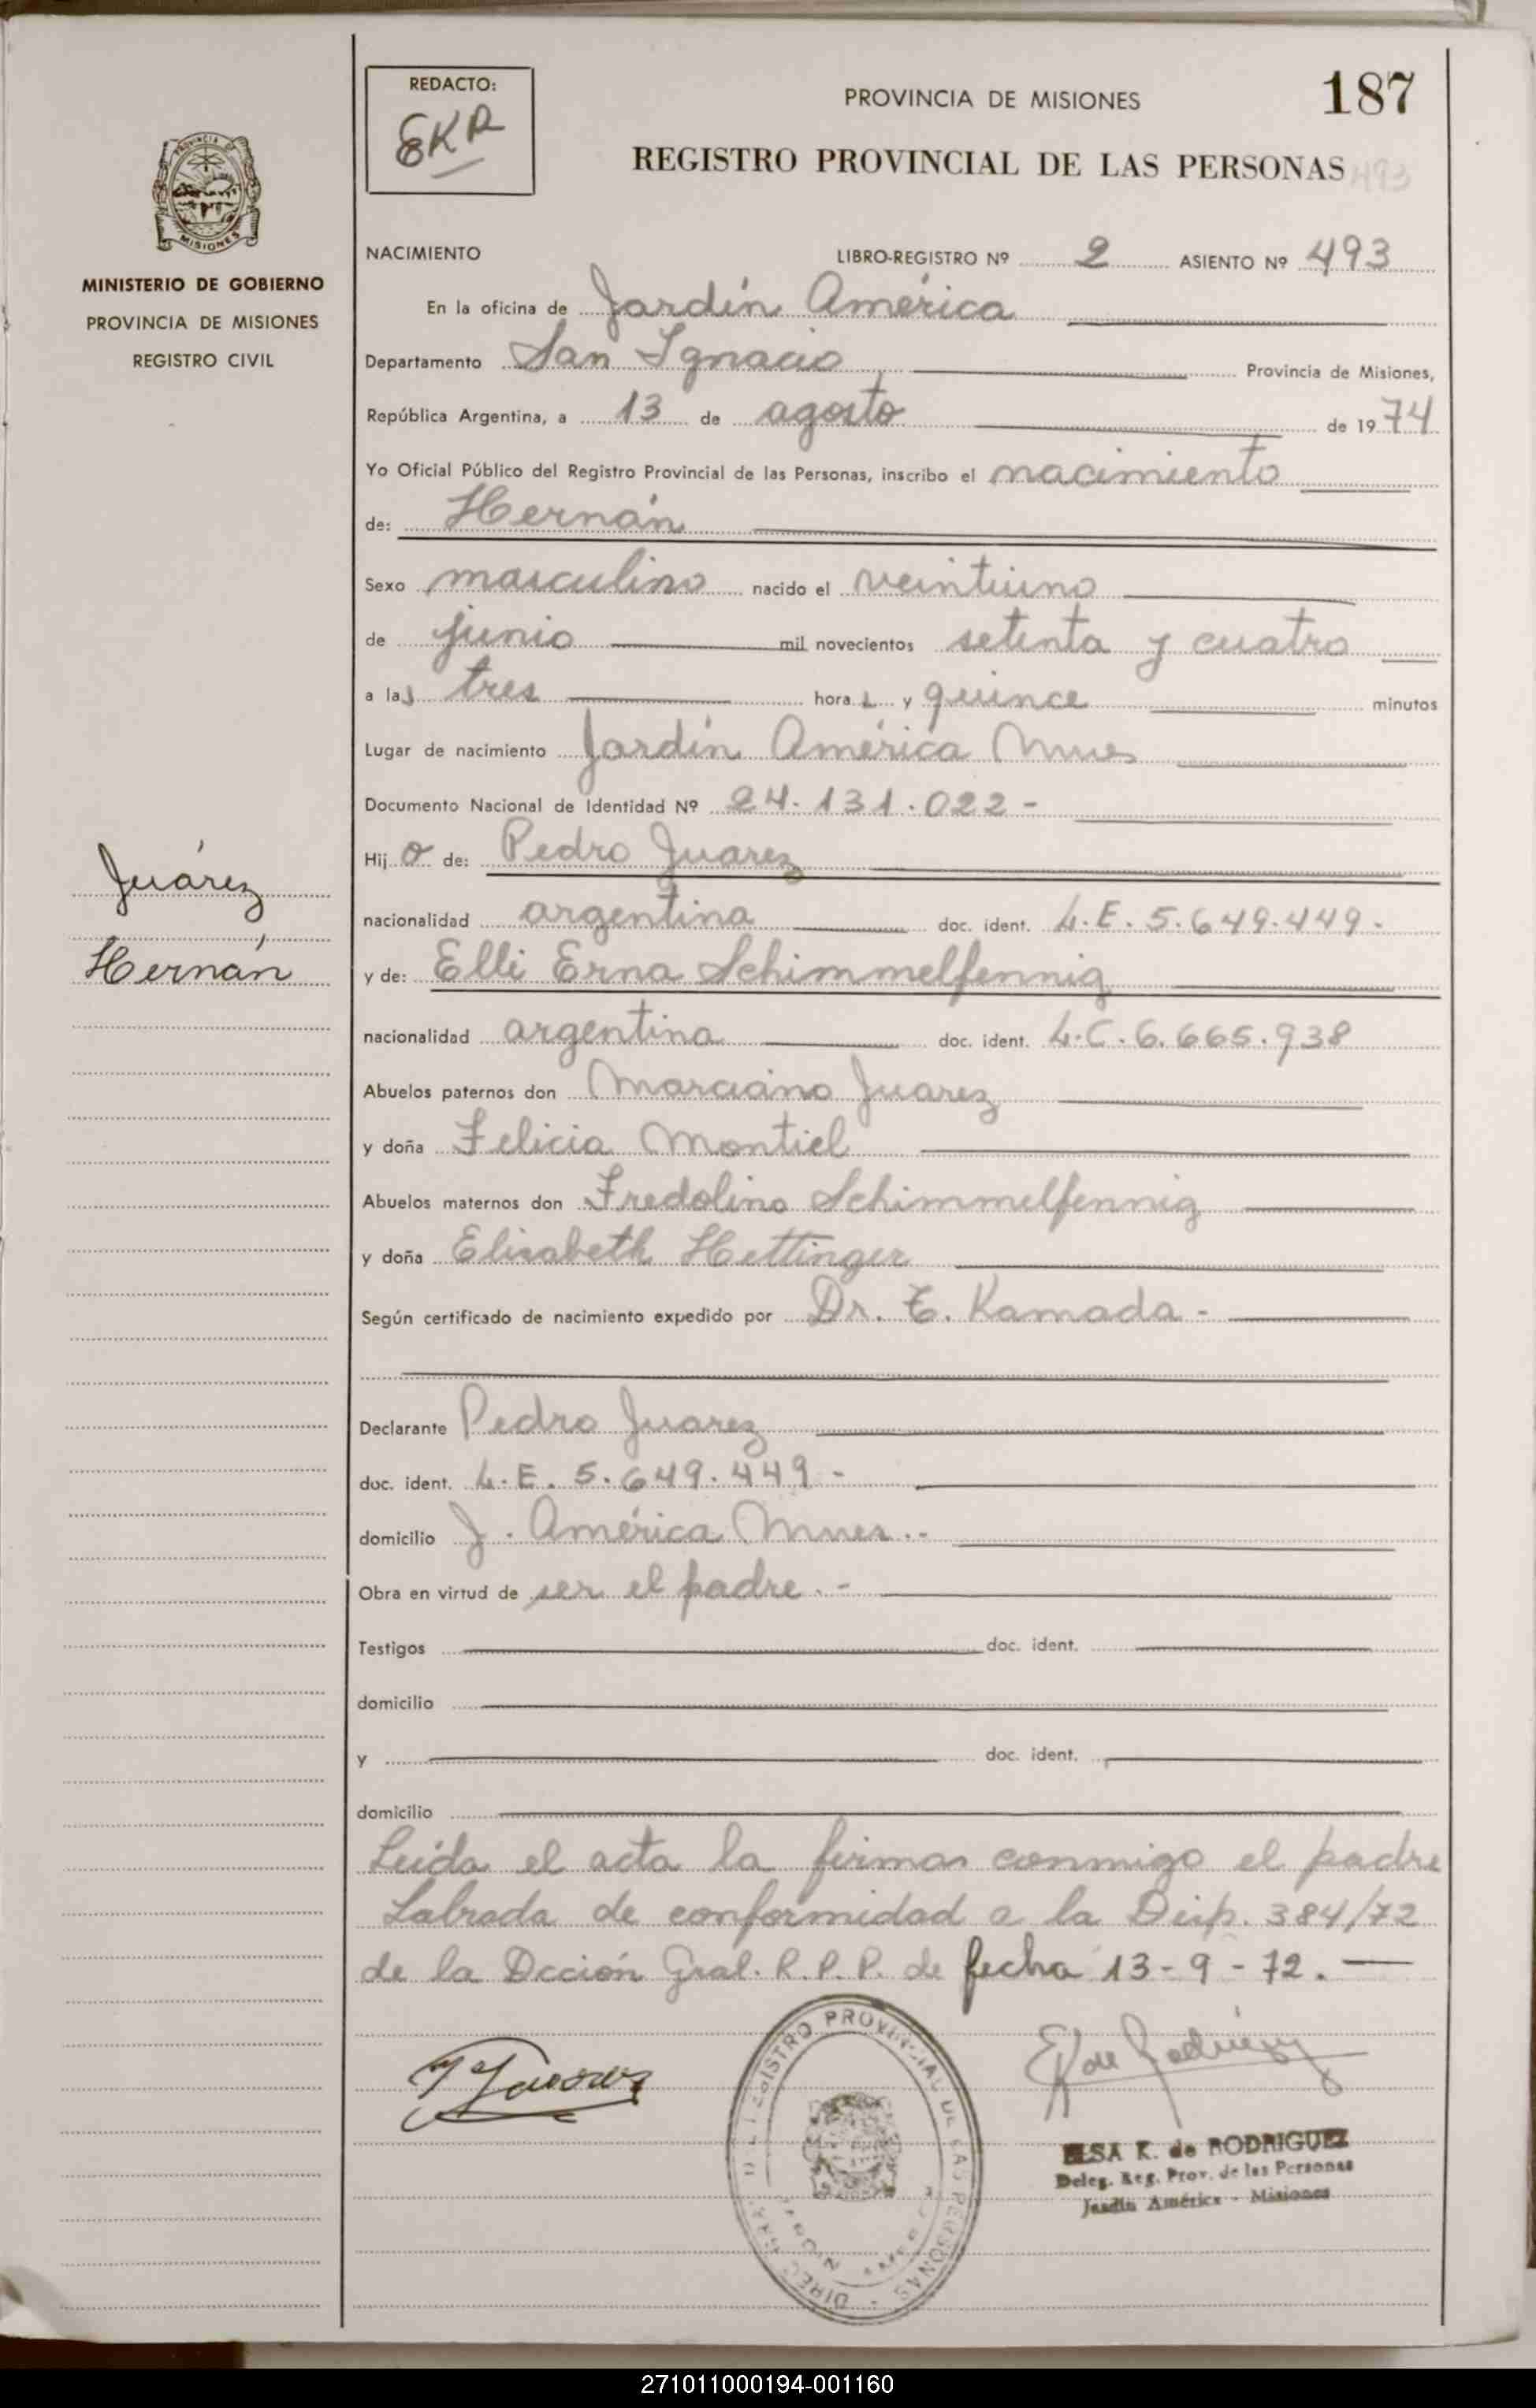 187
REDACTO:
EKR
PROVINCIA DE MISIONES
REGISTRO PROVINCIAL DE LAS PERSONAS
493
PROVINCIA DE
MISIONES
MINISTERIO DE GOBIERNO
PROVINCIA DE MISIONES
REGISTRO CIVIL
NACIMIENTO LIBRO-REGISTRO Nº 2 ASIENTO Nº 493
En la oficina de Jardín América
Departamento San Ignacio Provincia de Misiones,
República Argentina, a 13 de agosto de 1974
Yo Oficial Público del Registro Provincial de las Personas, inscribo el nacimiento
de: Hernán
Sexo masculino nacido el veintiuno
de junio mil novecientos setenta y cuatro
a las tres horas y quince minutos
Lugar de nacimiento Jardín América Mnes
Documento Nacional de Identidad Nº 24.131.022-
Hijo de: Pedro Juarez
Juárez
Hernán
nacionalidad argentina doc. ident. L.E. 5.649.449.
y de: Elli Erna Schimmelfennig
nacionalidad argentina doc. ident. L.C. 6.665.938
Abuelos paternos don Marciano Juarez
y doña Felicia Montiel
Abuelos maternos don Fredolino Schimmelfennig
y doña Elisabeth Hettinger
Según certificado de nacimiento expedido por Dr. E. Kamada-
Declarante Pedro Juarez
doc. ident. L.E. 5.649.449-
domicilio J. América Mnes.-
Obra en virtud de ser el padre.-
Testigos doc. ident.
domicilio
y doc. ident.
domicilio
Leída el acta la firman conmigo el padre
Labrada de conformidad a la Disp. 384/72
de la Dcción Gral. R.P.P. de fecha 13-9-72.
REGISTRO PROVINCIAL DE LAS PERSONAS
JARDIN AMERICA
ELSA K. de RODRIGUEZ
Deleg. Reg. Prov. de las Personas
Jardín América - Misiones
271011000194-001160